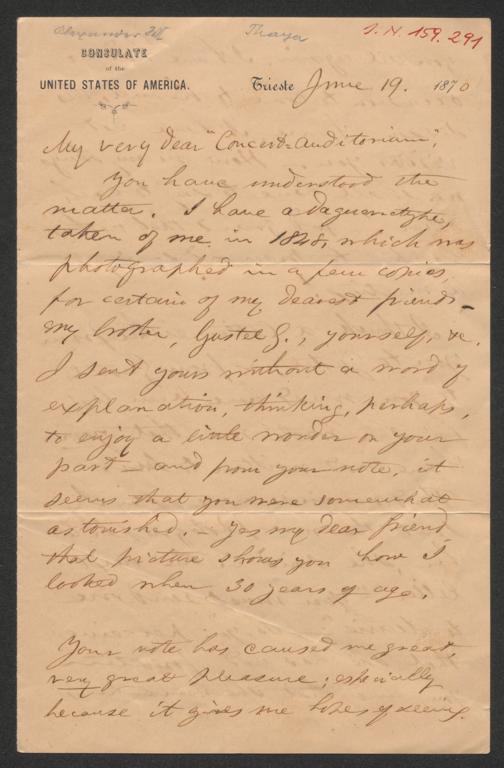 Alexander W. Thaya I. N. 159.291
CONSULATE
of the
UNITED STATES OF AMERICA.
Trieste June 19. 1870
My very dear "Concert-auditorium",
You have understood the
matter. I have a daguerreotype,
taken of me in 1848, which was
photographed in a few copies
for certain of my dearest friends -
my brother, Gustel G., yourself, &c.
I sent yours without a word of
explanation, thinking, perhaps,
to enjoy a little wonder on your
part - and from your note, it
seems that you were somewhat
astonished. - Yes my dear friend
that picture shows you how I
looked when 30 years of age.
Your note has caused me great,
very great pleasure; especially
because it gives me hopes of seeing